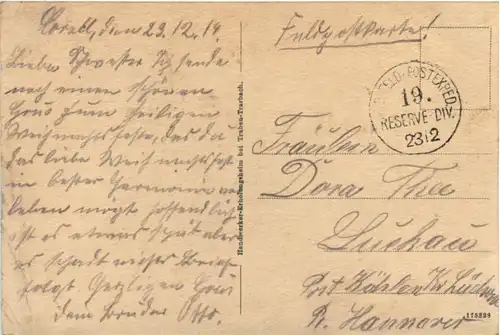 den 23.12.14.
Liebe Schwester Ich sende
noch einen schönen
Grus zum heiligen
Weihnachtsfeste, das du
das liebe Weihnachtsfest
in bester Harmonie ver
leben mögt hoffendlich
ist es etwas spät aber
es schadt nichts Brief
folgt Herzlichen Grus
dein Bruder Otto.
Handwerker-Erholungsheim bei Traben-Trarbach.
Feldpostkarte!
FELD-POSTEXPED.
19.
RESERVE-DIV.
2312
Fräulein
Dora Thee
Luckau
Post Kr Lüchow
Pr. Hannover